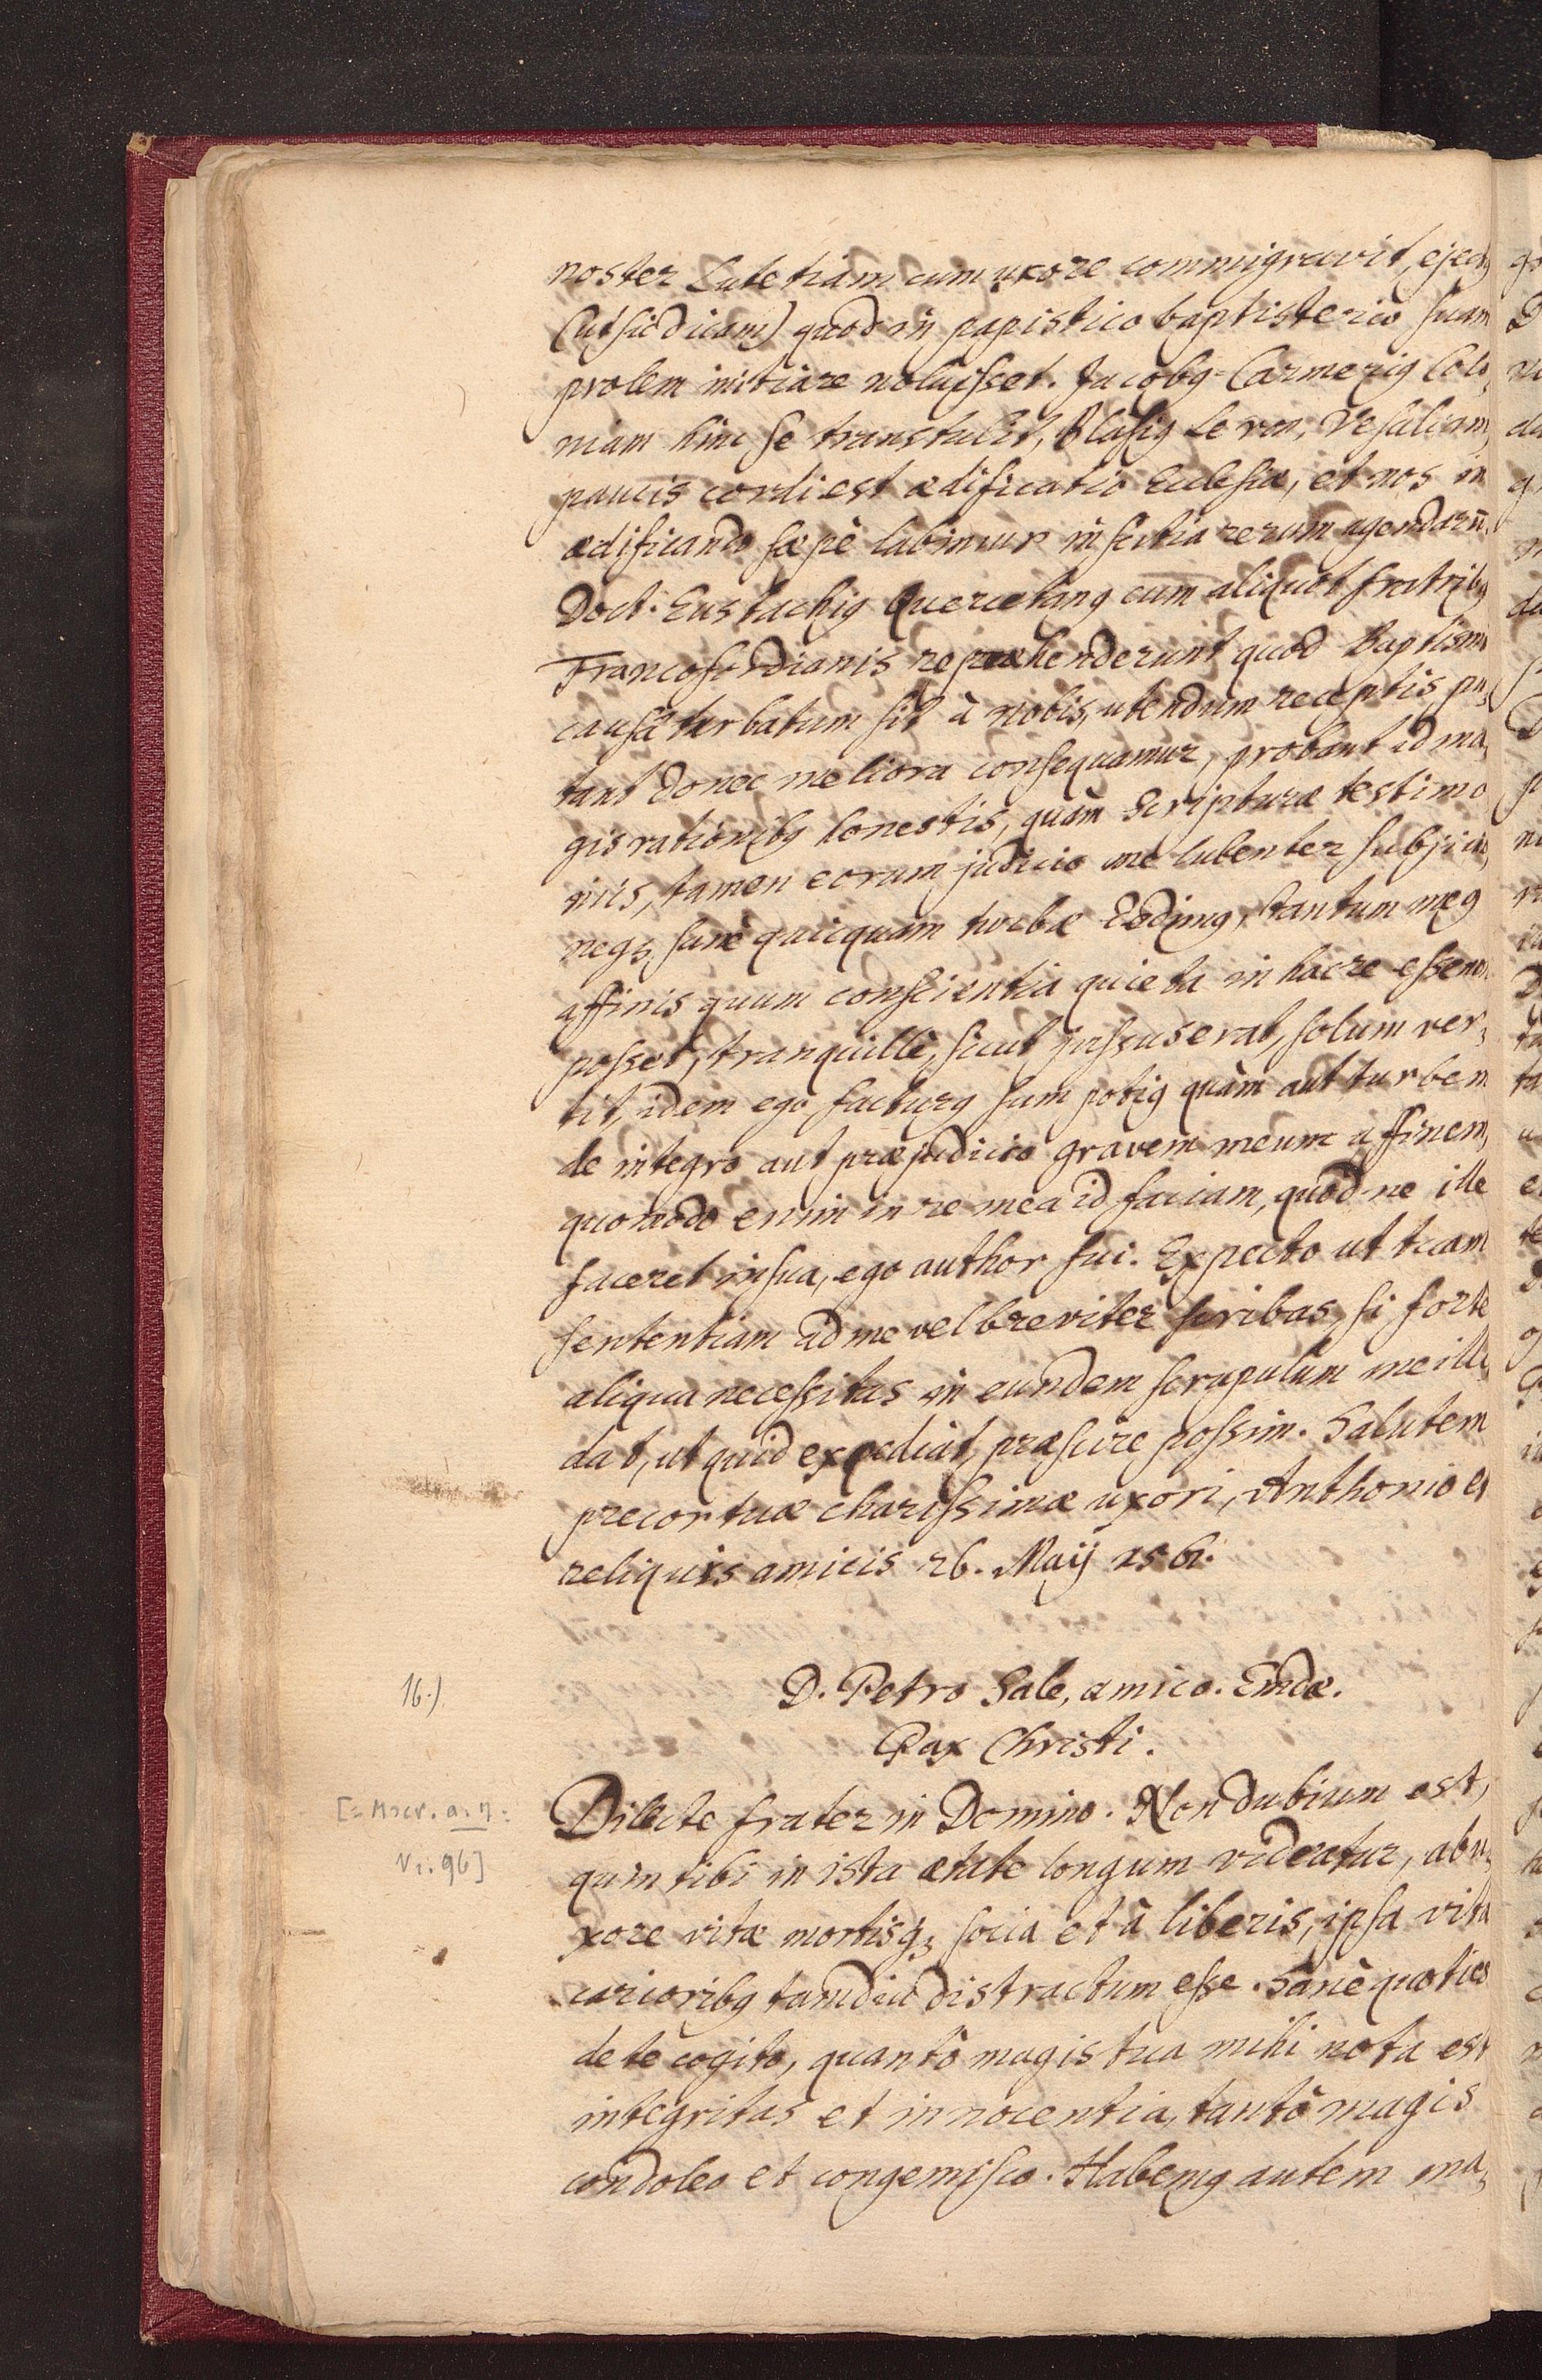 noster Lutetiam cum uxore commigravit, ejectꝰ
(ut sic dicam) quod in papistico baptisterio suam
prolem initiare noluisset. Jacobꝰ Carmeriꝰ Colo,
niam hinc se transtulit, Blasiꝰ Le ron, Vesaliam,
paucis cordi est ædificatio Ecclesiæ, et nos in
ædificando sæpè labimur inscitia rerum agendarū.
Doct. Eustachiꝰ Quercetanꝰ cum aliquot fratribꝰ
Francofordianis repræhenderunt quod Baptismi
causa turbatum sit à nobis, utendum receptis pu,
tant donec meliora consequamur, probant id ma,
gis rationibꝰ honestis, quàm Scripturæ testimo
niis, tamen eorum judicio me lubenter subjicio,
neqz sanè quicquam turbæ Edimꝰ, tantum meꝰ
affinis quum conscientia quieta in hac re esse non
posset, tranquillè, sicut jussus erat, solum ver,
tit, idem ego facturꝰ sum potiꝰ quàm aut turbem
de integro aut præjudicio gravem meum affinem,
quomodo enim in re mea id faciam, quod ne ille
faceret in sua, ego author fui. Expecto ut tuam
sententiam ad me vel breviter scribas, si forte
aliqua necessitas in eundem scrupulum me illi,
dat, ut quid expediat, præscire possim. Salutem
precor tuæ charissimæ uxori, Anthonio et
reliquis amicis 26. Maÿ 1561.
16.)
D. Petro Sale, amico. Emdæ.
Pax Christi.
[= Mscr. a. η:
Nr. 96]
Dilecte frater in Domino. Non dubium est,
quin tibi in ista ætate longum videatur, ab u,
xore vitæ mortisqz socia et à liberis, ipsa vita
carioribꝰ tamdiu distractum esse. Sanè quoties
de te cogito, quantò magis tua mihi nota est
integritas et innocentia, tantò magis
condoleo et congemisco. Habemꝰ autem ma,